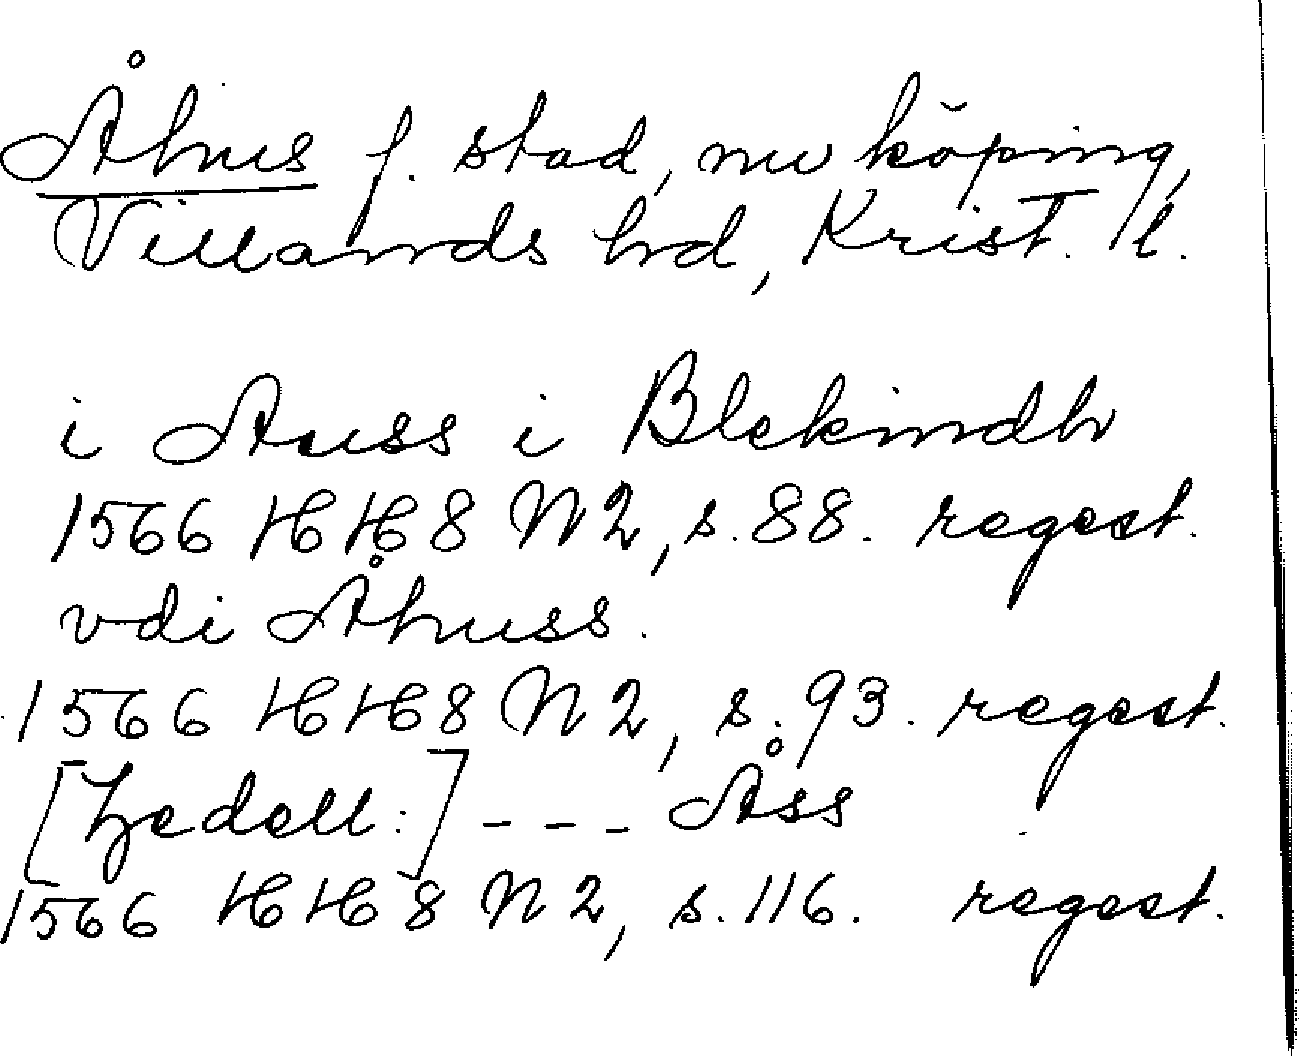 Åhus f. stad, nu köping,
Villands hd, Krist. l.
i Auss i Blekindh
1566 HH 8 N 2, s. 88. regest.
vdi Åhuss.
1566 HH 8 N 2, s. 93. regest.
[Zedell:] - - - Åss
1566 HH 8 N 2, s. 116. regest.